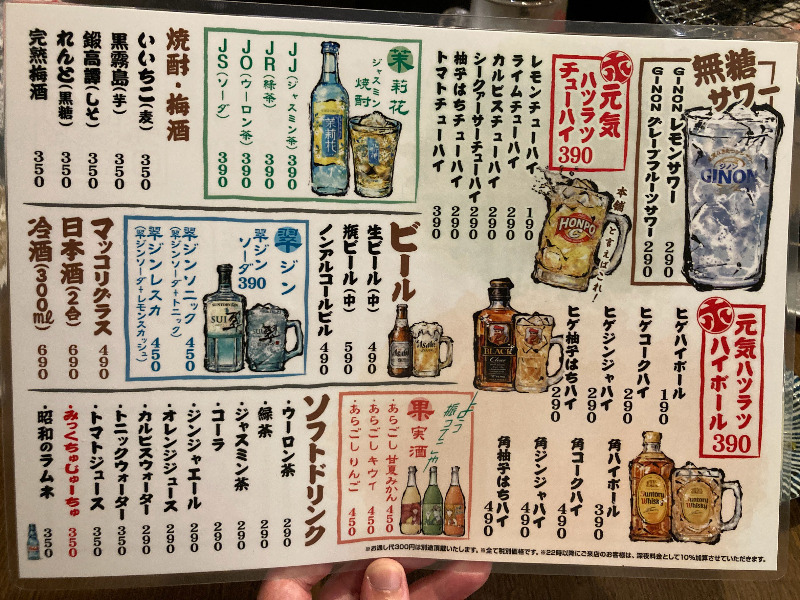 無糖
サワー
GINON レモンサワー 290
GINON グレープフルーツサワー 290
GINON
ホ 元気
ハツラツ
チューハイ
390
レモンチューハイ 190
ライムチューハイ 290
カルピスチューハイ 290
シークヮーサーチューハイ 290
柚子はちチューハイ 290
トマトチューハイ 390
本舗
と言えばこれ!
HONPO
茉莉花
ジャスミン
焼酎
茉莉花
JJ(ジャスミン茶) 390
JR(緑茶) 390
JO(ウーロン茶) 390
JS(ソーダ) 390
焼酎・梅酒
いいちこ(麦) 350
黒霧島(芋) 350
鍛高譚(しそ) 350
れんと(黒糖) 350
完熟梅酒 350
ホ 元気ハツラツ
ハイボール
390
ヒゲハイボール 190
ヒゲコークハイ 290
ヒゲジンジャハイ 290
ヒゲ柚子はちハイ 290
BLACK
角ハイボール 390
角コークハイ 490
角ジンジャハイ 490
角柚子はちハイ 490
Suntory
Whisky
ビール
生ビール(中) 490
瓶ビール(中) 590
ノンアルコールビル 490
Asahi
翠 ジン
翠ジン
ソーダ
390
SUI
翠ジンソニック 450
(翠ジンソーダ+トニック)
翠ジンレスカ 450
(翠ジンソーダ+レモンスカッシュ)
マッコリグラス 490
日本酒(2合) 690
冷酒(300ml) 690
果実酒
よーく
振って
ネ
・あらごし 甘夏みかん 450
・あらごし キウイ 450
・あらごし りんご 450
ソフトドリンク
・ウーロン茶 290
・緑茶 290
・ジャスミン茶 290
・コーラ 290
・ジンジャエール 290
・オレンジジュース 290
・カルピスウォーター 290
・トニックウォーター 350
・トマトジュース 350
・みっくちゅじゅーちゅ 350
・昭和のラムネ 350
※お通し代300円は別途頂戴いたします。※全て税別価格です。※22時以降にご来店のお客様は、深夜料金として10%加算させていただきます。